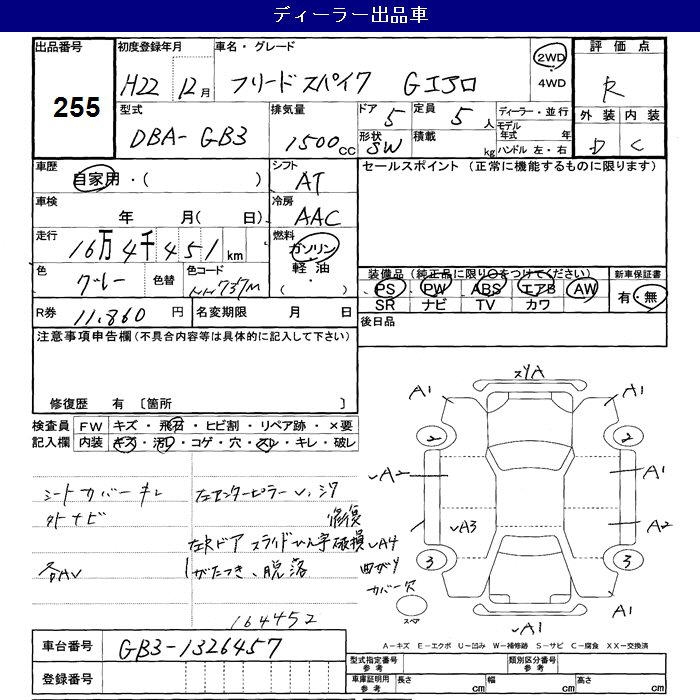 ディーラー出品車
出品番号 初度登録年月 車名・グレード 2WD 評価点
255 H22 12月 フリードスパイク Gエアロ 4WD R
型式 排気量 ドア 定員 ディーラー・並行 外装 内装
DBA-GB3 1500cc 5 5人 モデル年式 年 D C
形状 SW 積載 kg ハンドル 左・右
車歴 自家用・( ) シフト AT セールスポイント (正常に機能するものに限ります)
車検 年 月( 日) 冷房 AAC
走行 16万4千451km 燃料 ガソリン
軽油
( ・ )
色 グレー 色替 色コード NH737M 装備品(純正品に限り○をつけてください) 新車保証書
PS PW ABS エアB AW 有・無
SR ナビ TV カワ
R券 11,860円 名変期限 月 日 後日品
注意事項申告欄(不具合内容等は具体的に記入して下さい)
修復歴 有 〔箇所 〕
検査員 FW キズ・飛石・ヒビ割・リペア跡・×要
記入欄 内装 キズ・汚レ・コゲ・穴・スレ・キレ・破レ
シートカバーキレ 左センターピラー
外ナビ 修復
左Rドア スライド 破損
各AV ガタつき、脱落
曲がり
カバー欠
164452
スリA
A1 A1
2 2
A2 A1
A3 A2
A4
3 3
A1
スペア
A1
A－キズ E－エクボ U－凹み W－補修跡 S－サビ C－腐食 XX－交換済
車台番号 GB3-1326457
登録番号
型式指定番号 参考 類別区分番号 参考
車庫証明用 参考 長さ cm 幅 cm 高さ cm